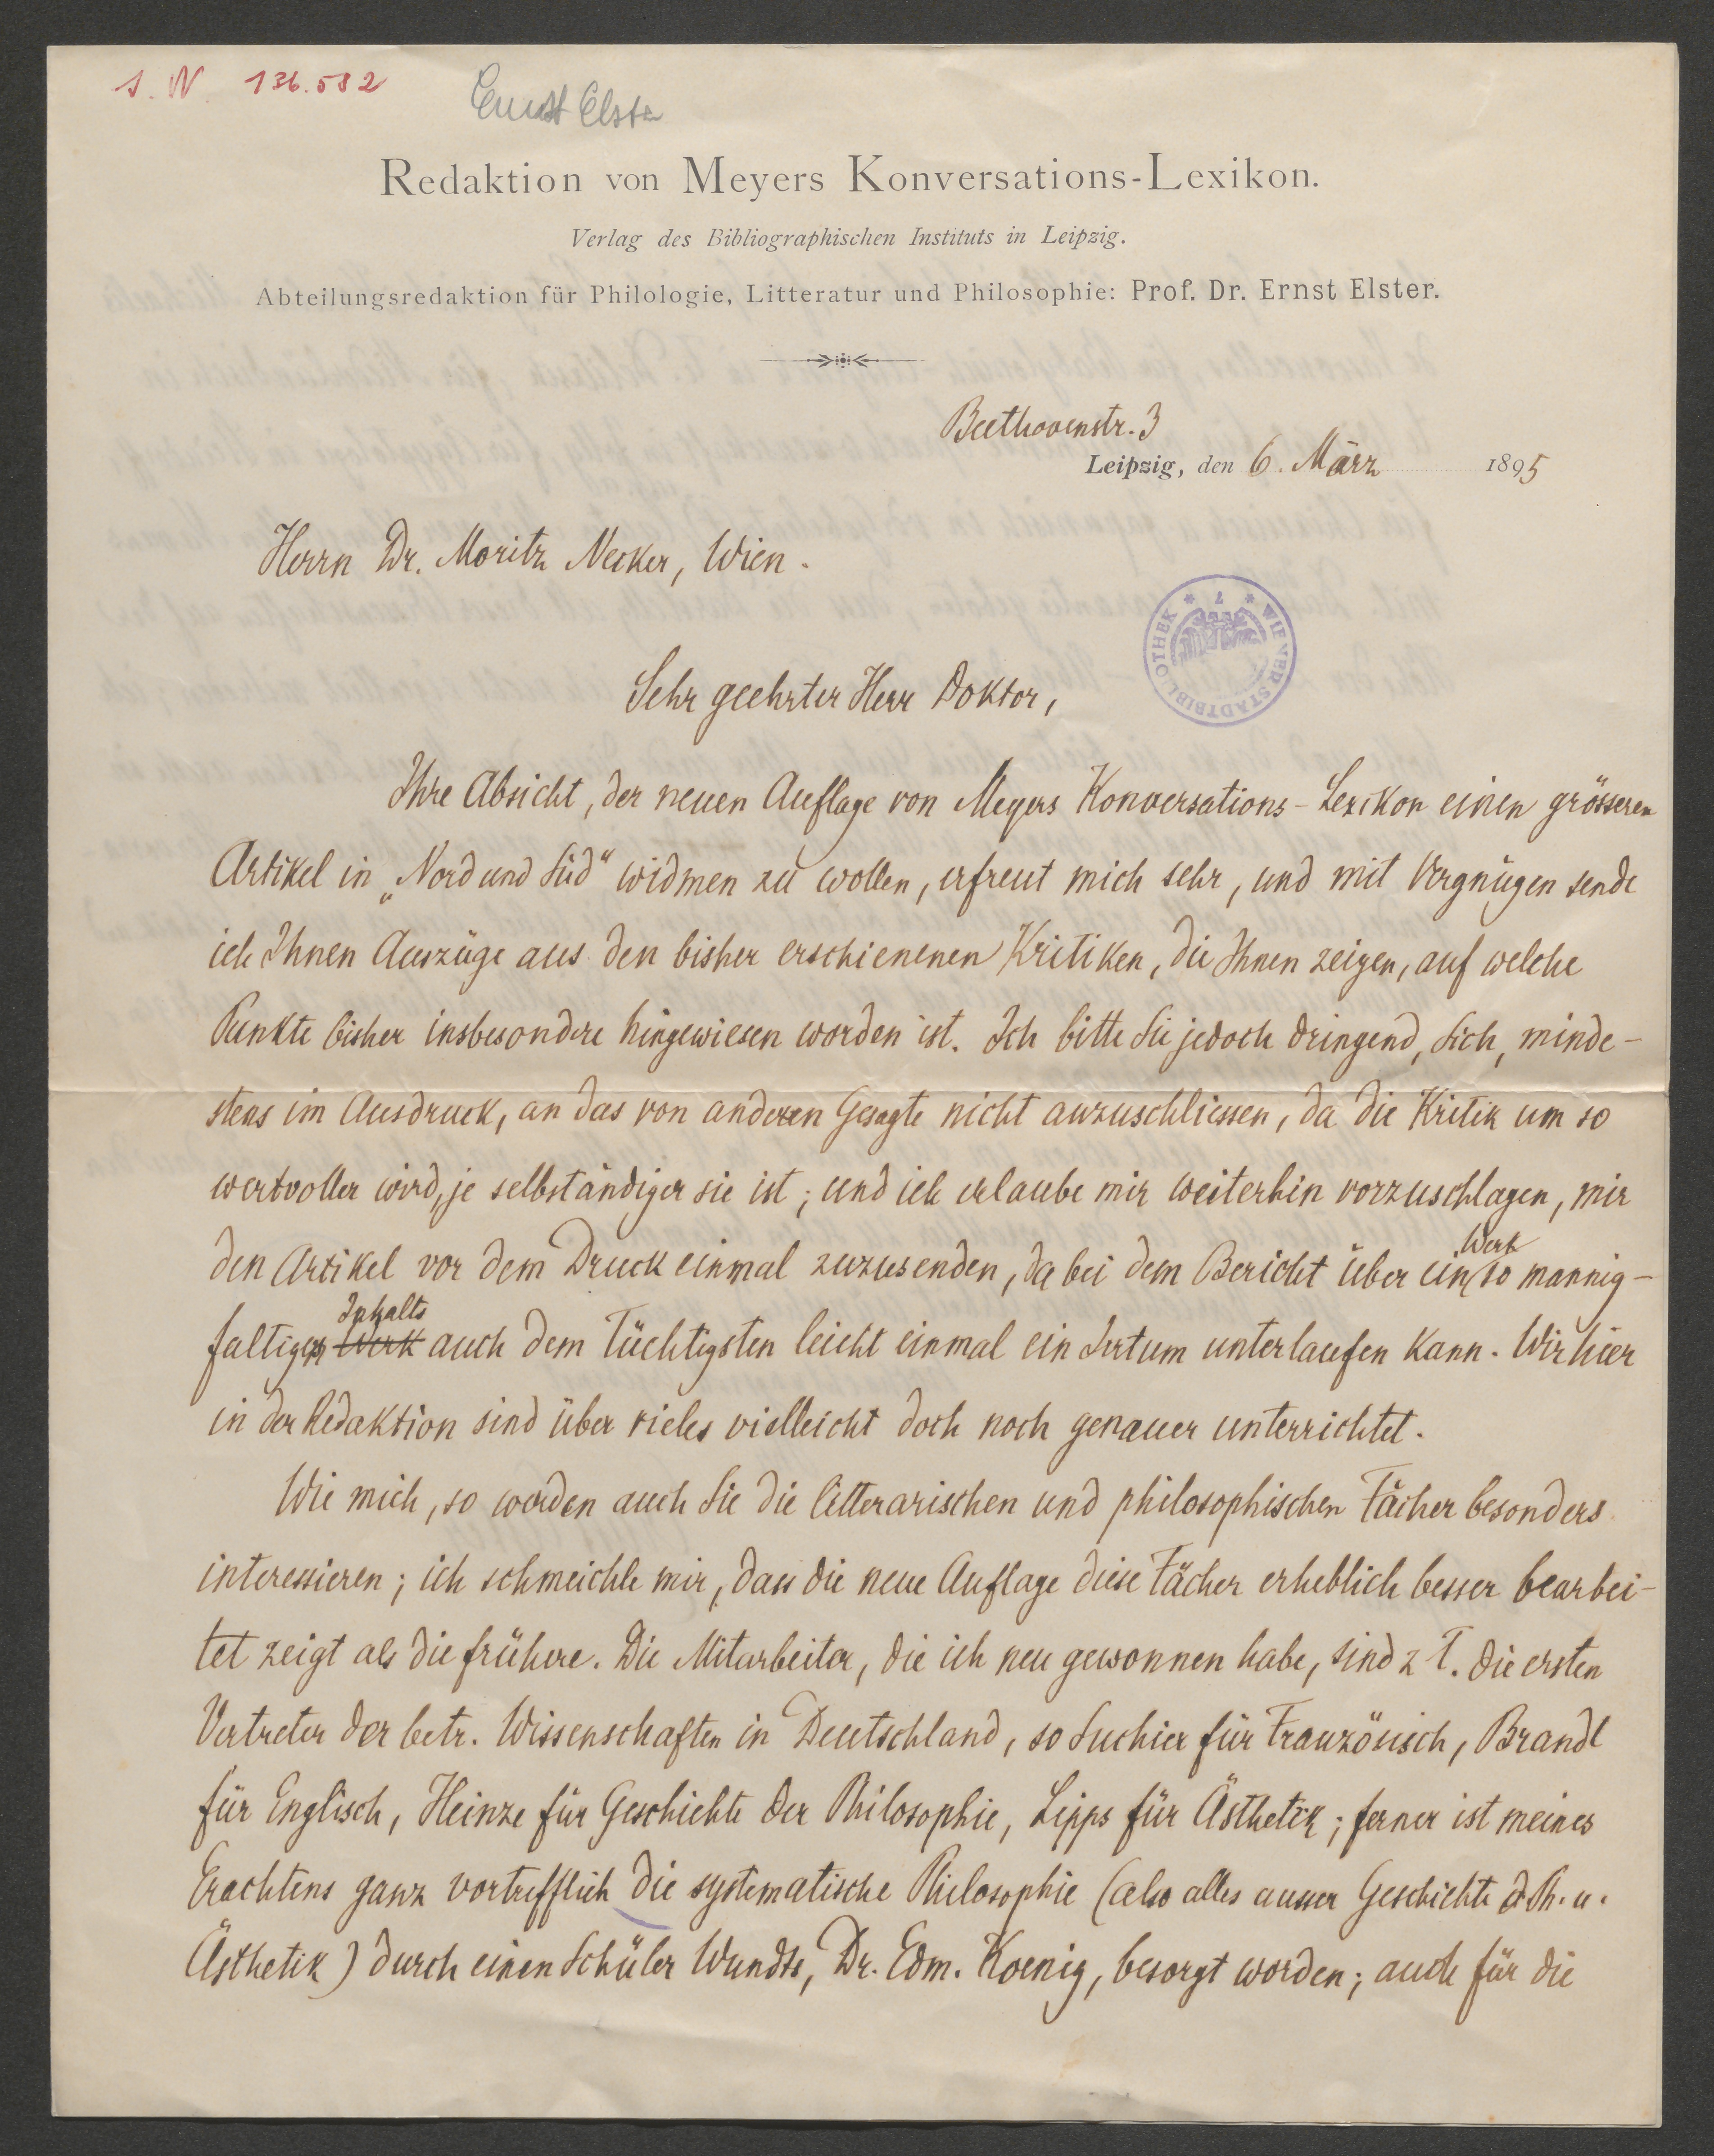 J. N. 136.582
Ernst Elster
Redaktion von Meyers Konversations-Lexikon.
Verlag des Bibliographischen Instituts in Leipzig.
Abteilungsredaktion für Philologie, Litteratur und Philosophie: Prof. Dr. Ernst Elster.
Beethovenstr. 3
Leipzig, den 6. März 1895
Herrn Dr. Moritz Necker, Wien.
WIENER STADTBIBLIOTHEK
Sehr geehrter Herr Doktor,
Ihre Absicht, der neuen Auflage von Meyers Konversations-Lexikon einen grösseren
Artikel in „Nord und Süd“ widmen zu wollen, erfreut mich sehr, und mit Vergnügen sende
ich Ihnen Auszüge aus den bisher erschienenen Kritiken, die Ihnen zeigen, auf welche
Punkte bisher insbesondere hingewiesen worden ist. Ich bitte Sie jedoch dringend, sich, minde-
stens im Ausdruck, an das von anderen Gesagte nicht anzuschliessen, da die Kritik um so
wertvoller wird, je selbständiger sie ist; und ich erlaube mir weiterhin vorzuschlagen, mir
den Artikel vor dem Druck einmal zuzusenden, da bei dem Bericht über ein Werk so mannig-
faltigen Werk Inhalts auch dem Tüchtigsten leicht einmal ein Irrtum unterlaufen kann. Wir hier
in der Redaktion sind über vieles vielleicht doch noch genauer unterrichtet.
Wie mich, so werden auch Sie die litterarischen und philosophischen Fächer besonders
interessieren; ich schmeichle mir, dass die neue Auflage diese Fächer erheblich besser bearbei-
tet zeigt als die frühere. Die Mitarbeiter, die ich neu gewonnen habe, sind z T. die ersten
Vertreter der betr. Wissenschaften in Deutschland, so Suchier für Französisch, Brandl
für Englisch, Heinze für Geschichte der Philosophie, Lipps für Ästhetik; ferner ist meines
Erachtens ganz vortrefflich die systematische Philosophie (also alles ausser Geschichte d. Ph. u.
Ästhetik) durch einen Schüler Wundts, Dr. Edm. Koenig, besorgt worden; auch für die